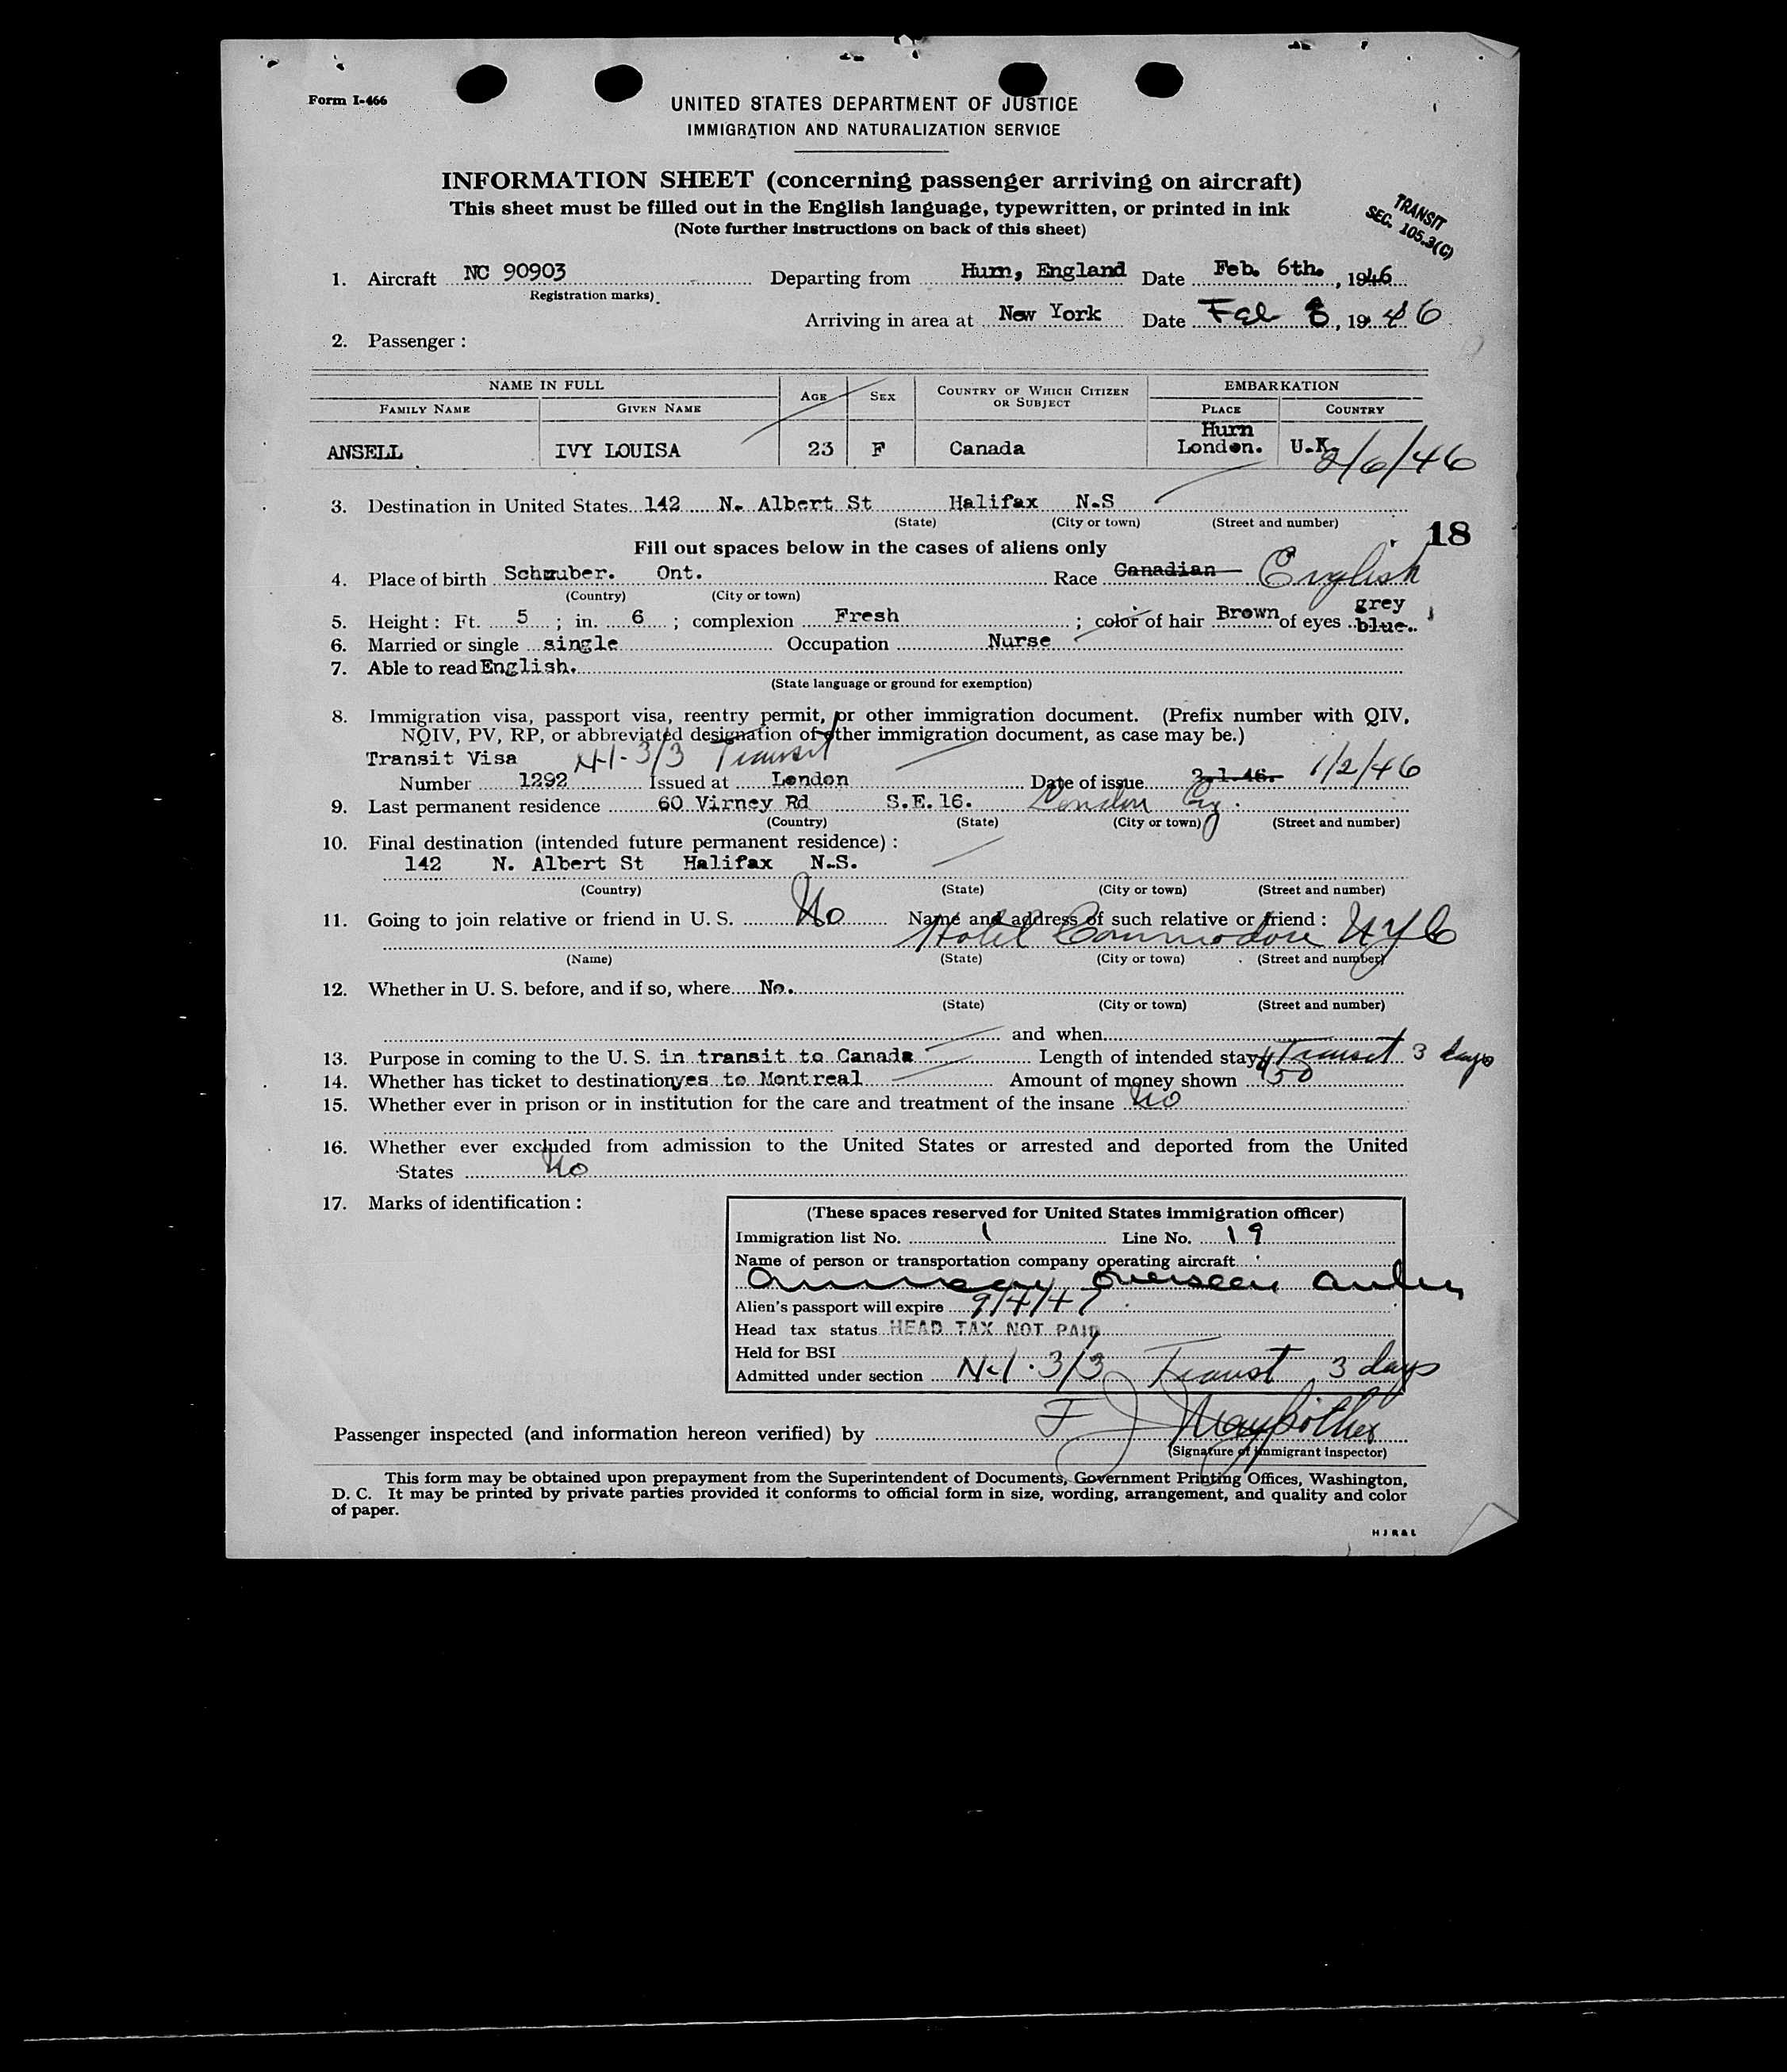 Form I-466
UNITED STATES DEPARTMENT OF JUSTICE
IMMIGRATION AND NATURALIZATION SERVICE
INFORMATION SHEET (concerning passenger arriving on aircraft)
This sheet must be filled out in the English language, typewritten, or printed in ink
(Note further instructions on back of this sheet)
TRANSIT
SEC. 105.3(C)
1. Aircraft NC 90903 Departing from Hurn, England Date Feb. 6th., 1946
(Registration marks)
Arriving in area at New York Date Feb 8, 1946
2. Passenger :
NAME IN FULL AGE SEX COUNTRY OF WHICH CITIZEN OR SUBJECT EMBARKATION
FAMILY NAME GIVEN NAME PLACE COUNTRY
Hurn
ANSELL IVY LOUISA 23 F Canada London. U.K. 2/6/46
3. Destination in United States 142 N. Albert St Halifax N.S
(State) (City or town) (Street and number)
18
Fill out spaces below in the cases of aliens only
4. Place of birth Schruber. Ont. Race Canadian English
(Country) (City or town)
grey
5. Height : Ft. 5 ; in. 6 ; complexion Fresh ; color of hair Brown of eyes blue.
6. Married or single single Occupation Nurse
7. Able to read English.
(State language or ground for exemption)
8. Immigration visa, passport visa, reentry permit, or other immigration document. (Prefix number with QIV,
NQIV, PV, RP, or abbreviated designation of other immigration document, as case may be.)
Transit Visa N-1-3/3 Transit
Number 1292 Issued at London Date of issue 2.1.46. 1/2/46
9. Last permanent residence 60 Virney Rd S.E.16. London Eng.
(Country) (State) (City or town) (Street and number)
10. Final destination (intended future permanent residence) :
142 N. Albert St Halifax N.S.
(Country) (State) (City or town) (Street and number)
11. Going to join relative or friend in U. S. No Name and address of such relative or friend :
Hotel Commodore NYC
(Name) (State) (City or town) (Street and number)
12. Whether in U. S. before, and if so, where No.
(State) (City or town) (Street and number)
and when
13. Purpose in coming to the U. S. in transit to Canada Length of intended stay Transit 3 days
14. Whether has ticket to destination yes to Montreal Amount of money shown $50
15. Whether ever in prison or in institution for the care and treatment of the insane No
16. Whether ever excluded from admission to the United States or arrested and deported from the United
States No
17. Marks of identification :
(These spaces reserved for United States immigration officer)
Immigration list No. 1 Line No. 19
Name of person or transportation company operating aircraft
American Overseas Airlines
Alien's passport will expire 9/4/47
Head tax status HEAD TAX NOT PAID
Held for BSI
Admitted under section N-1.3/3 Transit 3 days
Passenger inspected (and information hereon verified) by F J
(Signature of immigrant inspector)
This form may be obtained upon prepayment from the Superintendent of Documents, Government Printing Offices, Washington,
D. C. It may be printed by private parties provided it conforms to official form in size, wording, arrangement, and quality and color
of paper.
H J R & L